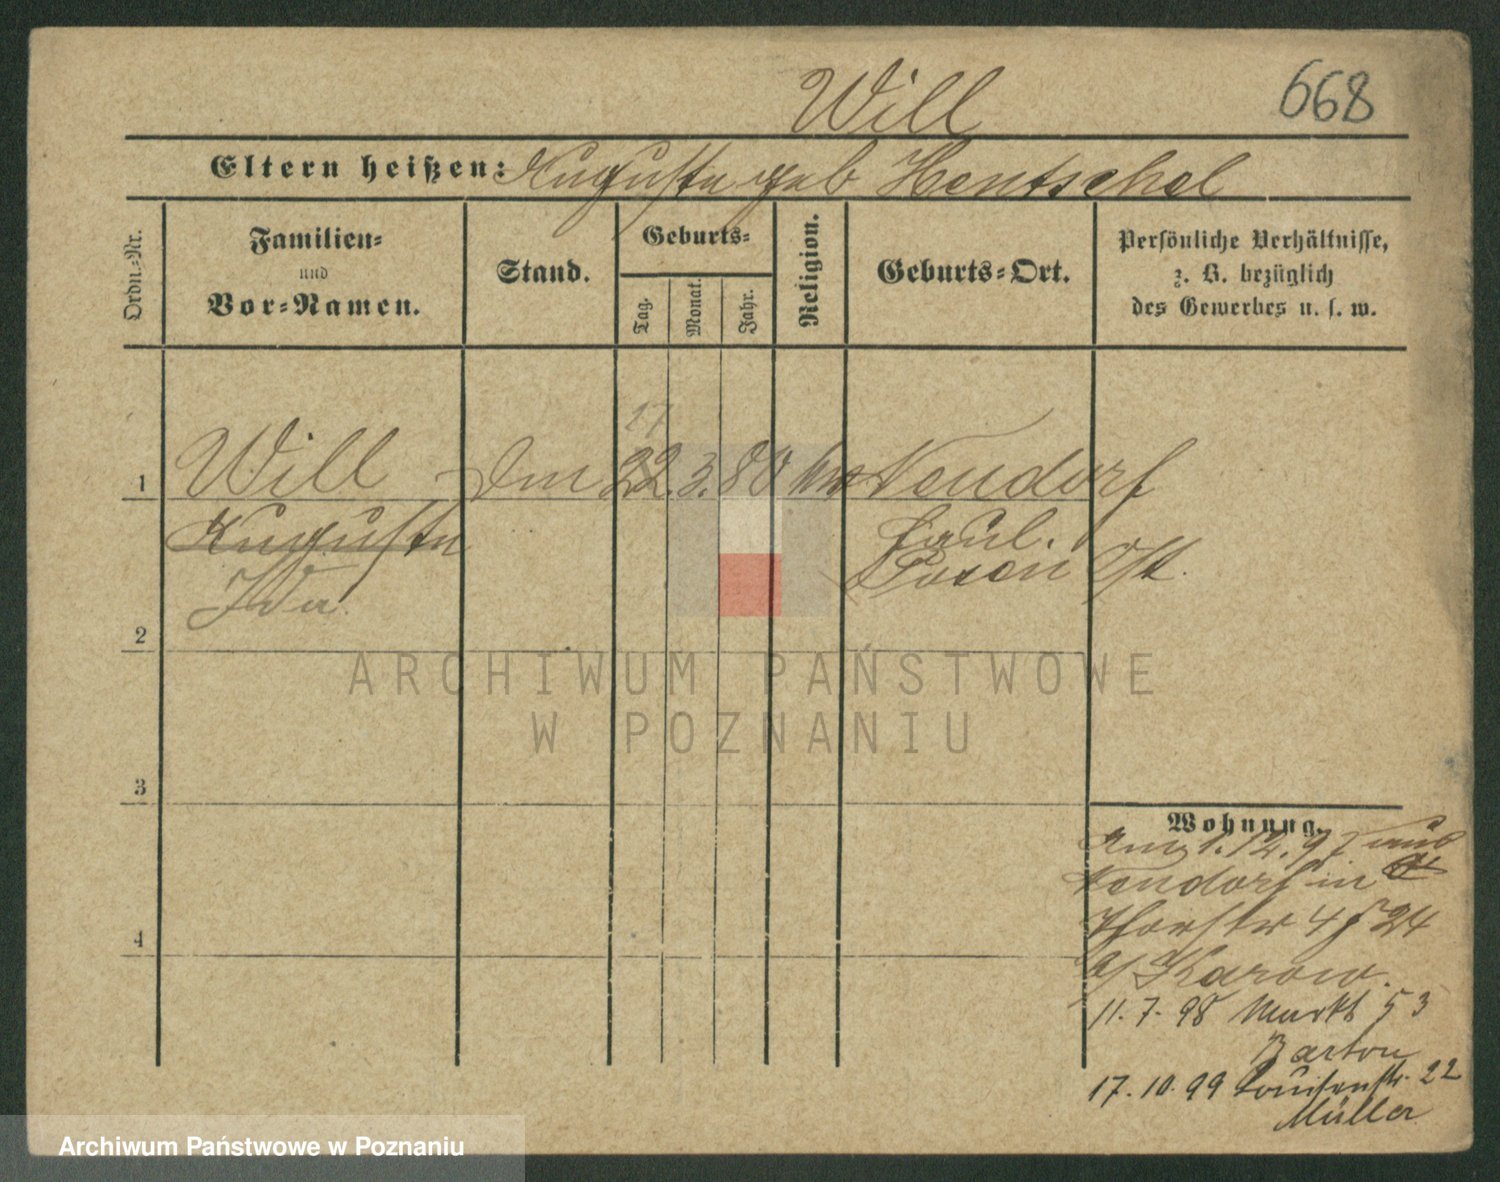 Will
668
Eltern heißen: Auguste geb Hentschel
Ordn.-Nr.
Familien-
und
Vor-Namen.
Stand.
Geburts-
Tag.
Monat.
Jahr.
Religion.
Geburts-Ort.
Persönliche Verhältnisse,
z. B. bezüglich
des Gewerbes u. s. w.
17
1 Will 22. 3. 80 Neudorf
Auguste
Ida
Posen Ost.
2
3
4
Wohnung.
1. 12. 97
Neudorf in
24
Karow.
11. 7. 98 Markt 53
Barton
17. 10. 99 Louisenstr. 22
Müller
ARCHIWUM PAŃSTWOWE
W POZNANIU
Archiwum Państwowe w Poznaniu